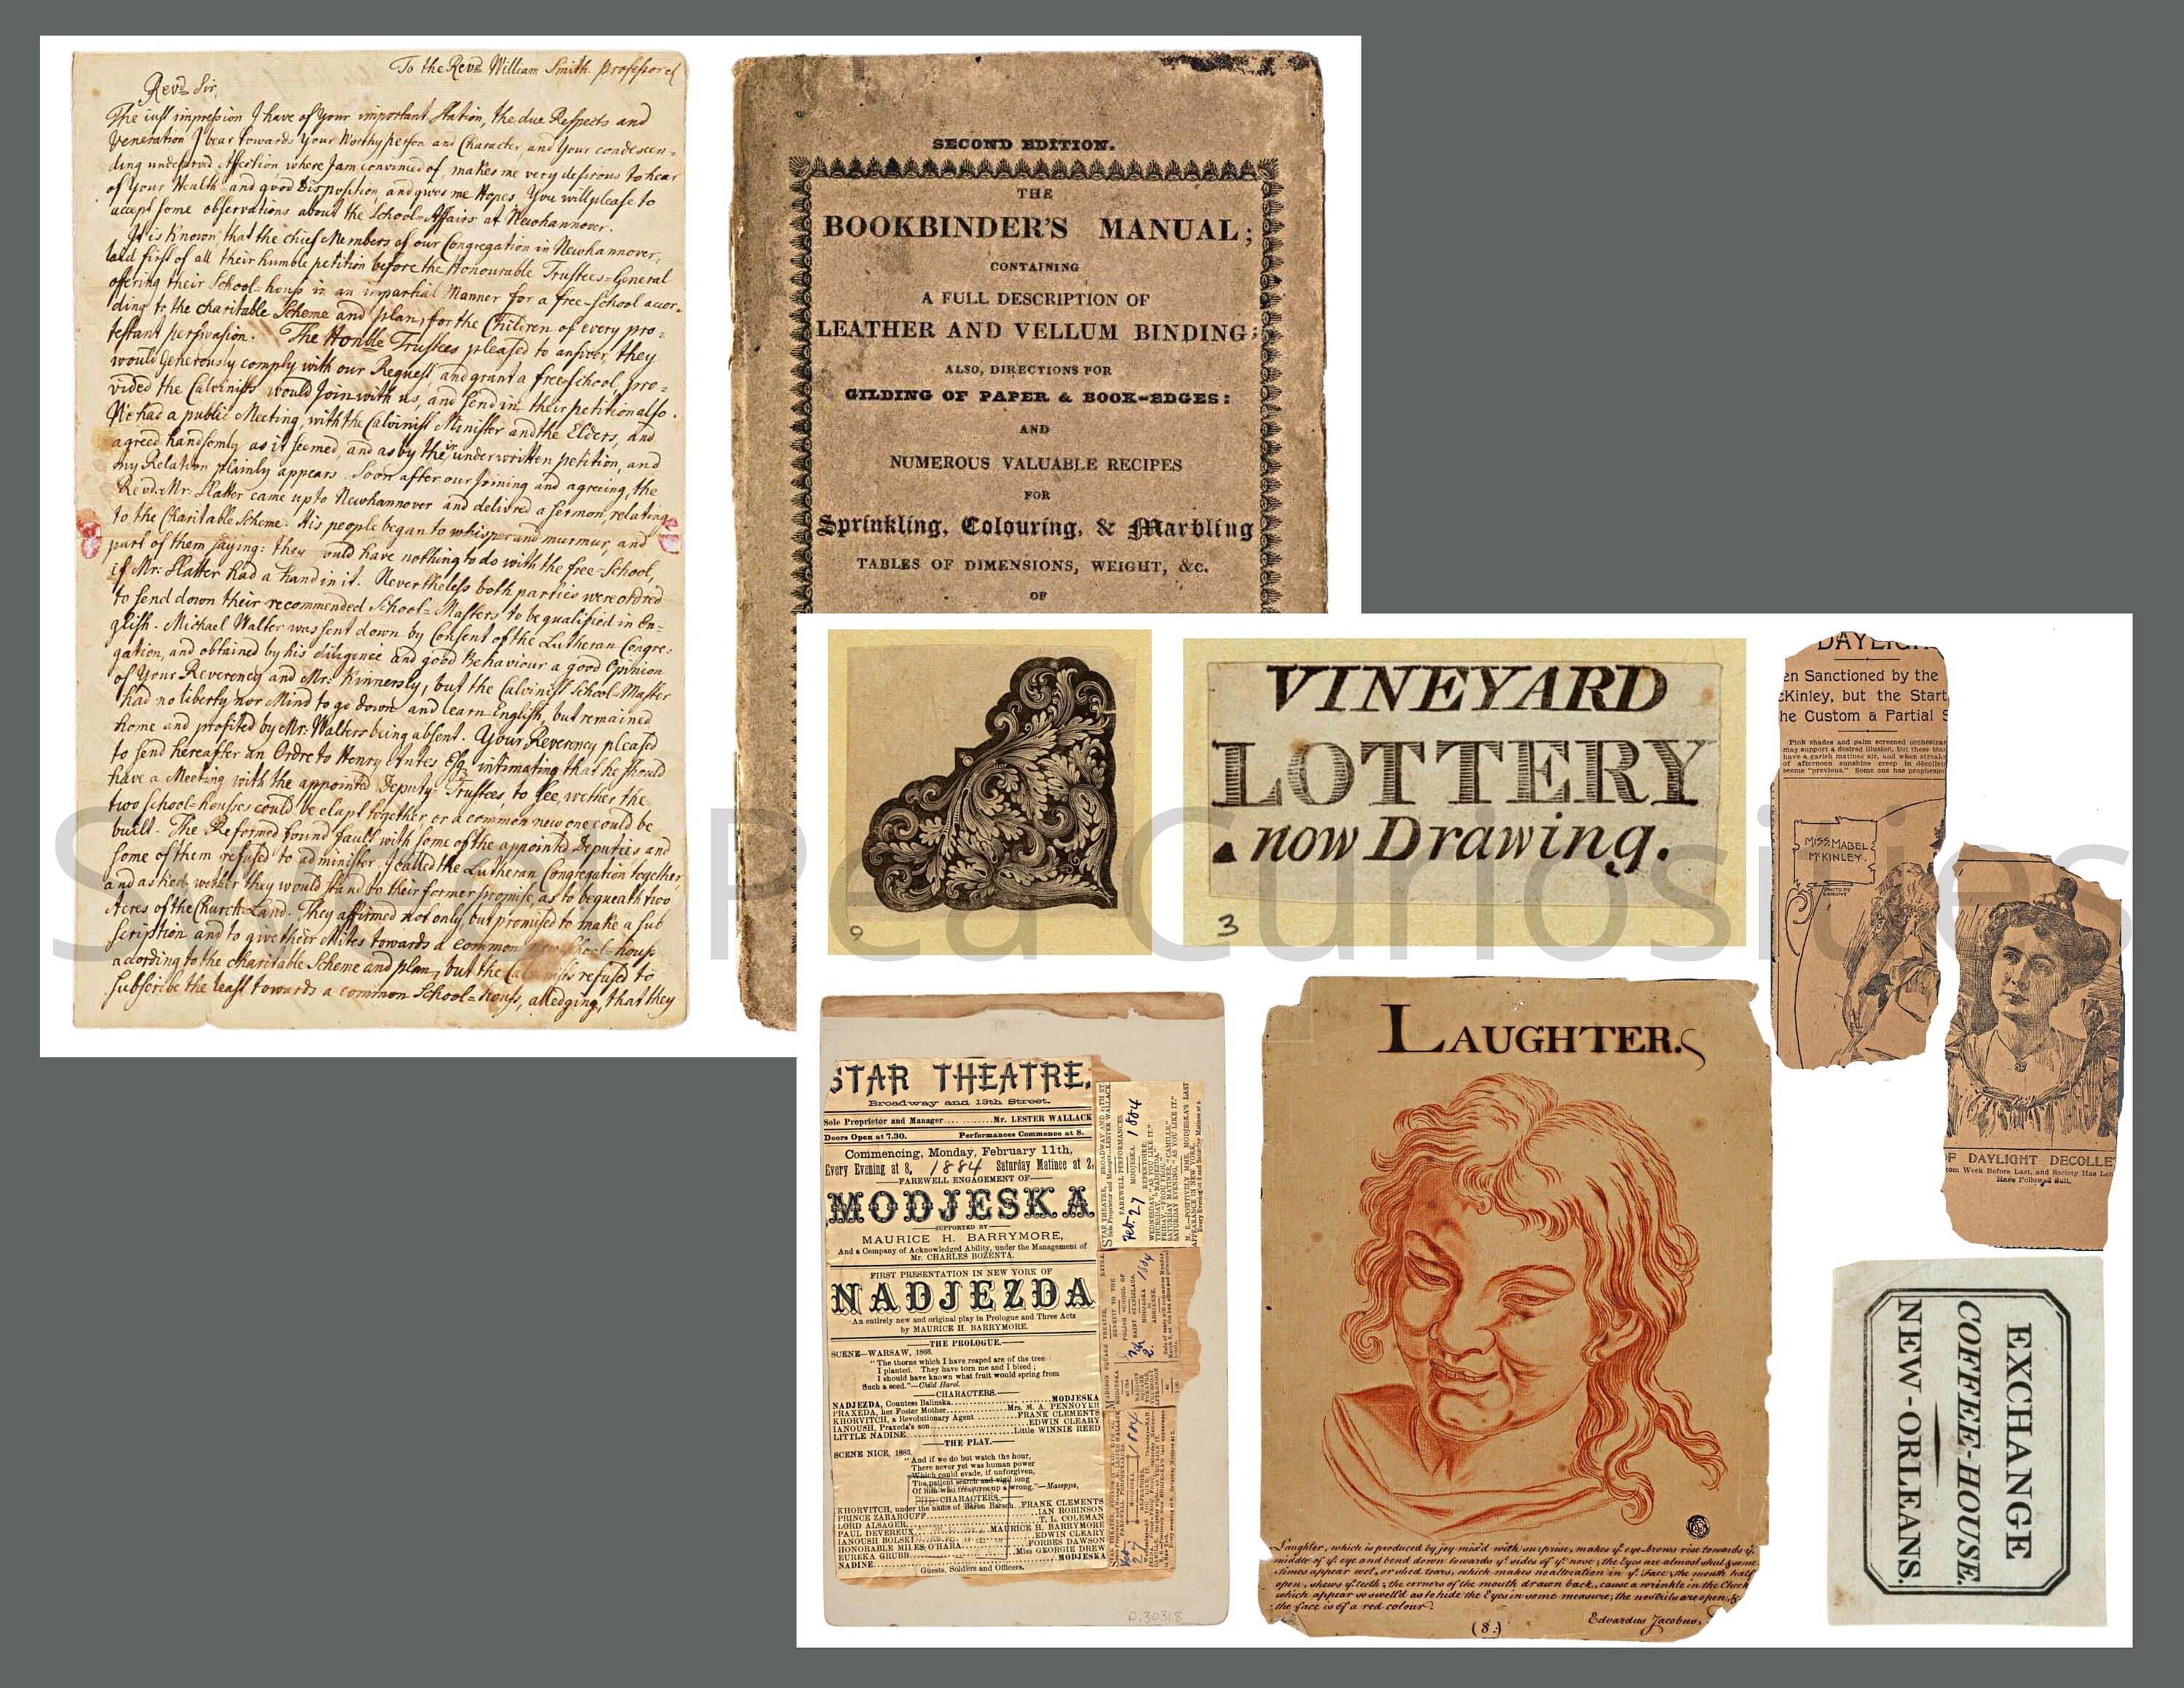 To the Revd. William Smith. Professor
Revd. Sir,
The just impression I have of Your important Station, the due Respects and
Veneration I bear towards Your Worthy person and Character, and Your condescen-
ding undeserved Affection, where I am convinced of, makes me very desirous to hear
of Your Health and good Disposition, and gives me Hopes You will please to
accept some observations about the School=Affairs at Newhannover.
It is known, that the chief Members of our Congregation in Newhannover,
laid first of all their humble petition before the Honourable Trustees=General
offering their School=house in an impartial Manner for a free=School accor-
ding to the charitable Scheme and plan, for the Children of every pro-
testant perswasion. The Honble Trustees pleased to answer, they
would generously comply with our Request, and grant a free=School, pro-
vided the Calvinists would Join with us, and send in their petition also.
We had a public Meeting, with the Calvinist Minister and the Elders, and
agreed handsomly as it seemed, and as by their underwritten petition, and
my Relation plainly appears. Soon after our Joining and agreeing, the
Revd. Mr: Slatter came up to Newhannover and delivred a sermon, relating
to the Charitable Scheme. His people began to whisper and murmur, and
part of them saying: they would have nothing to do with the free=School,
if Mr: Slatter had a hand in it. Nevertheless both parties were ordred
to send down their recommended School=Masters to be qualified in En-
glish. Michael Walter was sent down by Consent of the Lutheran Congre-
gation, and obtained by his diligence and good Behaviour a good Opinion
of Your Reverency and Mr: Kinnersly, but the Calvinist School=Master
had no liberty nor Mind to go down and learn English, but remained
home and profited by Mr: Walters being absent. Your Reverency pleased
to send hereafter an Ordre to Henry Antes Esq. intimating that he should
have a Meeting with the appointed Deputy=Trustees, to see, wether the
two School=houses could be clapt together or a common new one could be
built. The Reformed found fault with some of the appointed Deputies and
some of them refused to administer. I called the Lutheran Congregation together,
and asked, wether they would stand to their former promise, as to bequeath two
Acres of the Church=Land. They affirmed not only but promised to make a Sub
scription and to give their Mites towards a common new School=house
acording to the charitable Scheme and plan, but the Calvinists refused to
subscribe the least towards a common School=house, alledging, that they
SECOND EDITION.
THE
BOOKBINDER'S MANUAL;
CONTAINING
A FULL DESCRIPTION OF
LEATHER AND VELLUM BINDING;
ALSO, DIRECTIONS FOR
GILDING OF PAPER & BOOK-EDGES:
AND
NUMEROUS VALUABLE RECIPES
FOR
Sprinkling, Colouring, & Marbling
TABLES OF DIMENSIONS, WEIGHT, &c.
OF
9
VINEYARD
LOTTERY
now Drawing.
3
DAYLIG
en Sanctioned by the
cKinley, but the Start
he Custom a Partial S
Pink shades and palm screened orchestras
may support a desired illusion, but these teas
have a garish matinee air, and when streaks
of afternoon sunshine creep in décollete
seems "previous." Some one has prophesied
MISS MABEL
McKINLEY.
PHOTO BY
SARONY
OF DAYLIGHT DECOLLE
tom Week Before Last, and Society Has Len
Have Followed Suit.
STAR THEATRE,
Broadway and 13th Street.
Sole Proprietor and Manager..........Mr. LESTER WALLACK
Doors Open at 7.30. Performances Commence at 8.
Commencing, Monday, February 11th,
Every Evening at 8, 1884 Saturday Matinee at 2,
FAREWELL ENGAGEMENT OF
MODJESKA
SUPPORTED BY
MAURICE H. BARRYMORE,
And a Company of Acknowledged Ability, under the Management of
Mr. CHARLES BOZENTA.
FIRST PRESENTATION IN NEW YORK OF
NADJEZDA
An entirely new and original play in Prologue and Three Acts
by MAURICE H. BARRYMORE.
THE PROLOGUE.
SCENE—WARSAW, 1863.
"The thorns which I have reaped are of the tree
I planted. They have torn me and I bleed;
I should have known what fruit would spring from
Such a seed."—Child Harol.
CHARACTERS.
NADJEZDA, Countess Balinska..........MODJESKA
PRAXEDA, her Foster Mother..........Mrs. M. A. PENNOYER
KHORVITCH, a Revolutionary Agent..........FRANK CLEMENTS
IANOUSH, Praxeda's son..........EDWIN CLEARY
LITTLE NADINE..........Little WINNIE REED
THE PLAY.
SCENE NICE, 1883.
"And if we do but watch the hour,
There never yet was human power
Which could evade, if unforgiven,
The patient search and vigil long
Of him who treasures up a wrong."—Mazeppa,
CHARACTERS.
KHORVITCH, under the name of Baron Barsch..FRANK CLEMENTS
PRINCE ZABAROUFF..........IAN ROBINSON
LORD ALSAGER..........T. L. COLEMAN
PAUL DEVEREUX..........MAURICE H. BARRYMORE
IANOUSH BOLSKI..........EDWIN CLEARY
HONORABLE MILES O'HARA..........FORBES DAWSON
EUREKA GRUBB..........Miss GEORGIE DREW
NADINE..........MODJESKA
Guests, Soldiers and Officers.
STAR THEATRE, BROADWAY AND 13TH ST.
Sole Proprietor and Manager...LESTER WALLACK
FAREWELL PERFORMANCES.
Feb. 27 MODJESKA. 1884
REPERTOIRE:
WEDNESDAY, "AS YOU LIKE IT."
THURSDAY, "NADJEZDA."
FRIDAY, "FROU FROU."
SATURDAY MATINEE, "CAMILLE."
SATURDAY EVENING, "AS YOU LIKE IT."
N. B.—POSITIVELY MME. MODJESKA'S LAST
APPEARANCE IN NEW YORK.
Every Evening at 8 and Saturday Matinee at 2.
0.30318
LAUGHTER.
Laughter, which is produced by joy mix'd with surprise, makes ye eye-brows rise towards ye
middle of ye eye and bend down towards ye sides of ye nose; the Eyes are almost shut & some
-times appear wet, or shed tears, which makes no alteration in ye Face; the mouth half
open, shews ye teeth; the corners of the mouth drawn back, cause a wrinkle in the Cheek
which appear so swell'd as to hide the Eyes in some measure; the nostrils are open, &
the face is of a red colour.
Edvardus Jacobus.
(8.)
EXCHANGE
COFFEE-HOUSE.
NEW-ORLEANS.